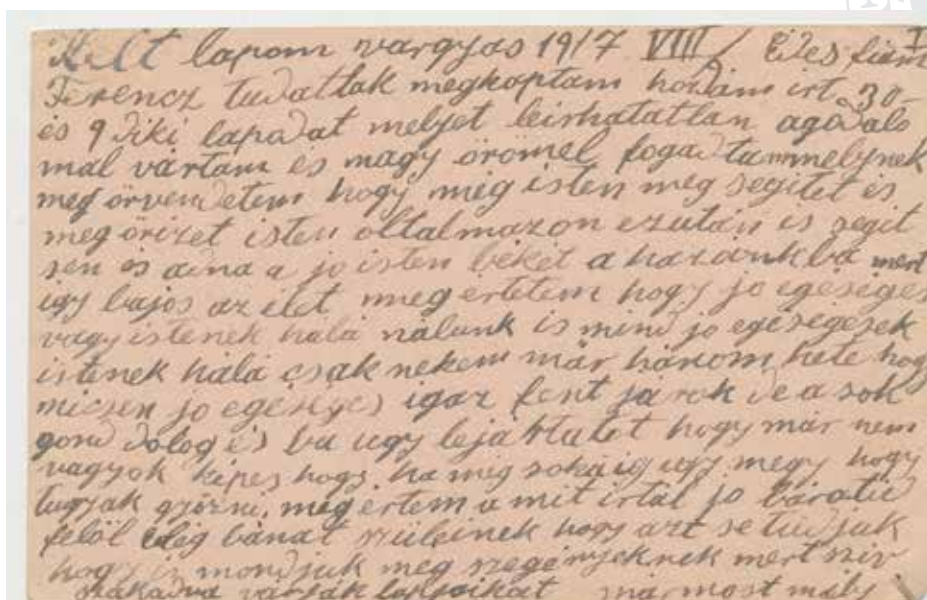 Kelt lapom vargyas 1917 VIII/ Édes fiem
Ferencz tudattak megkaptam hozám irt 30
és 9 diki lapadat melyet leirhatatlan agodalo
mal vártam és nagy örömel fogadtam melynek
meg örvendetem hogy még isten meg segitet és
meg örizet isten oltalmazon ezután is segit
sen és adna a jo isten békét a hazánkba mert
igy bajos az élet meg értetem hogy jo egeséges
vagy istenek hála nálunk is mind jo egeségesek
istenek hála csak nekem már három hete hogy
nicsen jo egeséges igaz fent járok de a sok
gond dolog és bu ugy lejártatot hogy már nem
vagyok képes hogy ha még sokáig ugy megy hogy
tugjak győzni. még értem a mit irtál jo barátid
felöl elég bánat szüleinek hogy azt se tudják
hogy is mondjuk meg szegényeknek mert sziv
szakadva várják lapjaikat már most mely